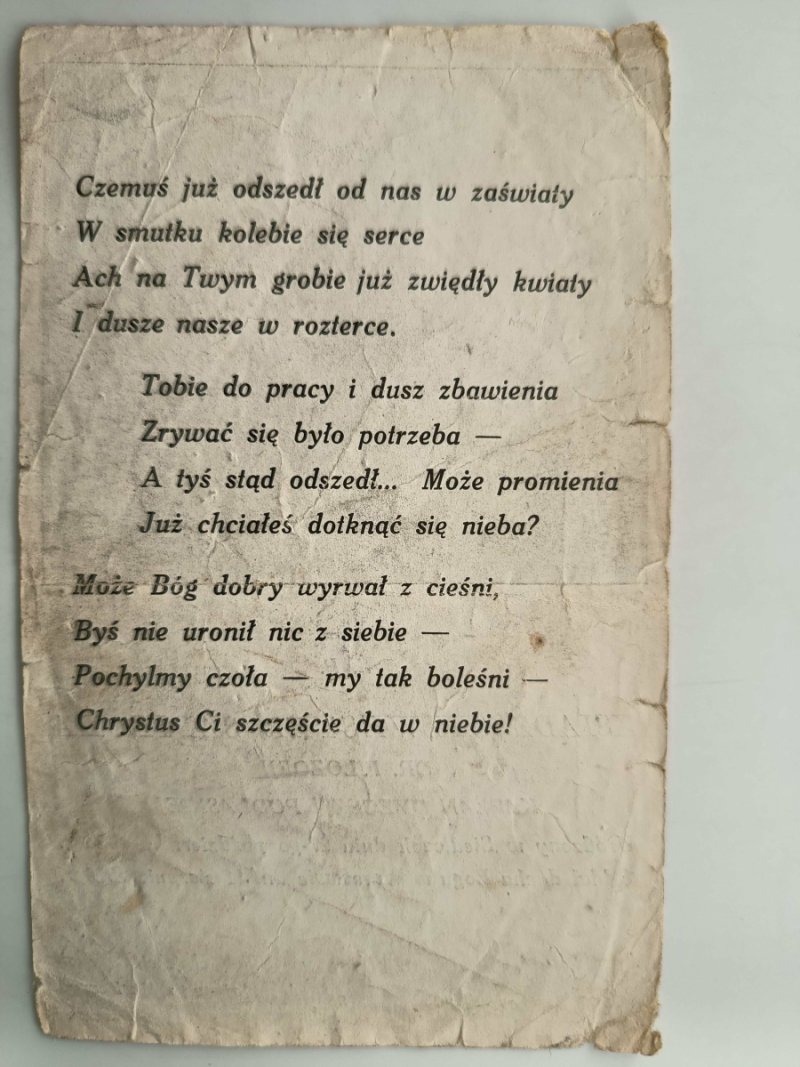 Czemuś już odszedł od nas w zaświaty
W smutku kolebie się serce
Ach na Twym grobie już zwiędły kwiaty
I dusze nasze w rozterce.
Tobie do pracy i dusz zbawienia
Zrywać się było potrzeba —
A tyś stąd odszedł... Może promienia
Już chciałeś dotknąć się nieba?
Może Bóg dobry wyrwał z cieśni,
Byś nie uronił nic z siebie —
Pochylmy czoła — my tak boleśni —
Chrystus Ci szczęście da w niebie!